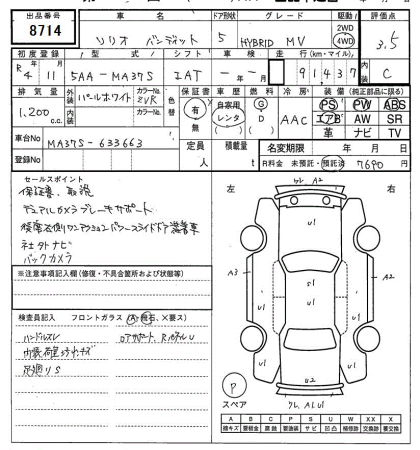 出品番号
8714
車名
ソリオ バンディット
ドア形状
5
グレード
HYBRID MV
駆動
2WD
4WD
評価点
3.5
初度登録
R4 年 11 月
型式
5AA-MA37S
シフト
IAT
車検
年 月
走行(km・マイル)
91,437
内装
C
排気量
1,200 c.c.
外装
パールホワイト
カラーNo.
ZVR
内装
カラーNo.
色替
保証書
有
無
車歴
自家用
レンタ
燃料
G
D
冷房
AAC
装備(純正部品に限る)
PS PW ABS
エアB AW SR
革 ナビ TV
車台No
MA37S-633663
登録No
定員
人
積載量
t
名変期限
年 月 日
R料金 未預託・預託済 7690 円
セールスポイント
保証書、取説
デュアルカメラブレーキサポート
後席両側ワンアクションパワースライドドア装着車
社外ナビ
バックカメラ
※注意事項記入欄(修復・不具合箇所および状態等)
検査員記入 フロントガラス(A・飛石、X要ス)
ハンドルスレ
足廻りS
左
右
A2
U1
A3
A2
U1
U1
U1
U2
A1.U1
P
スペア
A B C P S U W X XX
線キズ 要板金 腐蝕 要塗装 サビ 凹凸 補修跡 要交換 交換跡